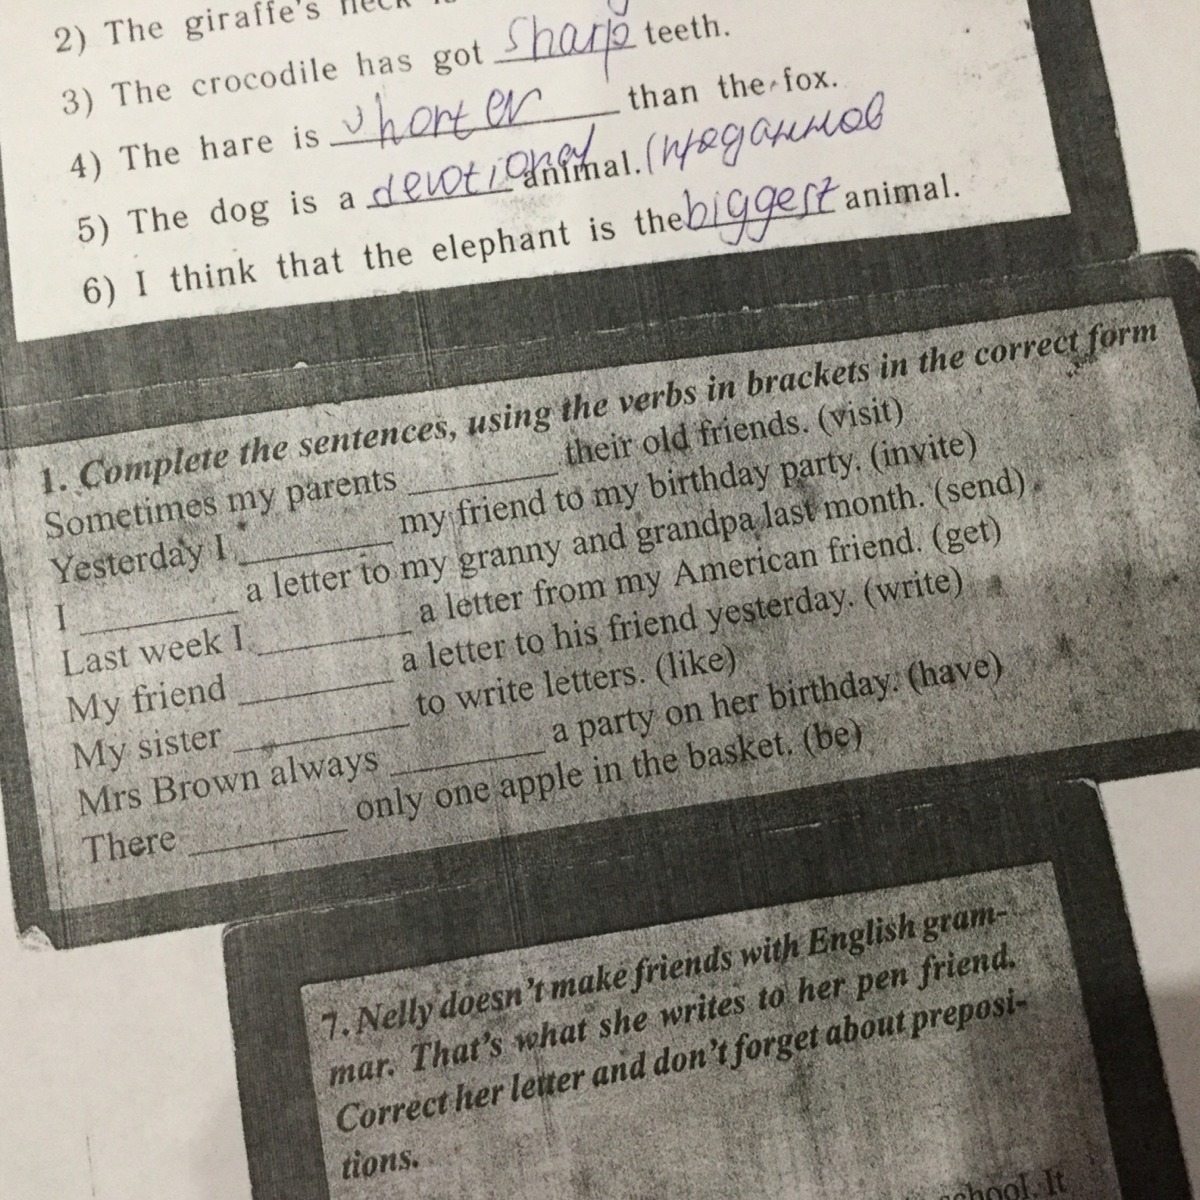 2) The giraffe's neck
3) The crocodile has got sharp teeth.
4) The hare is shorter than the fox.
5) The dog is a devotional animal.(
6) I think that the elephant is the biggest animal.
1. Complete the sentences, using the verbs in brackets in the correct form
Sometimes my parents ________ their old friends. (visit)
Yesterday I ________ my friend to my birthday party. (invite)
I ________ a letter to my granny and grandpa last month. (send)
Last week I ________ a letter from my American friend. (get)
My friend ________ a letter to his friend yesterday. (write)
My sister ________ to write letters. (like)
Mrs Brown always ________ a party on her birthday. (have)
There ________ only one apple in the basket. (be)
7. Nelly doesn't make friends with English gram-
mar. That's what she writes to her pen friend.
Correct her letter and don't forget about preposi-
tions.
school. It